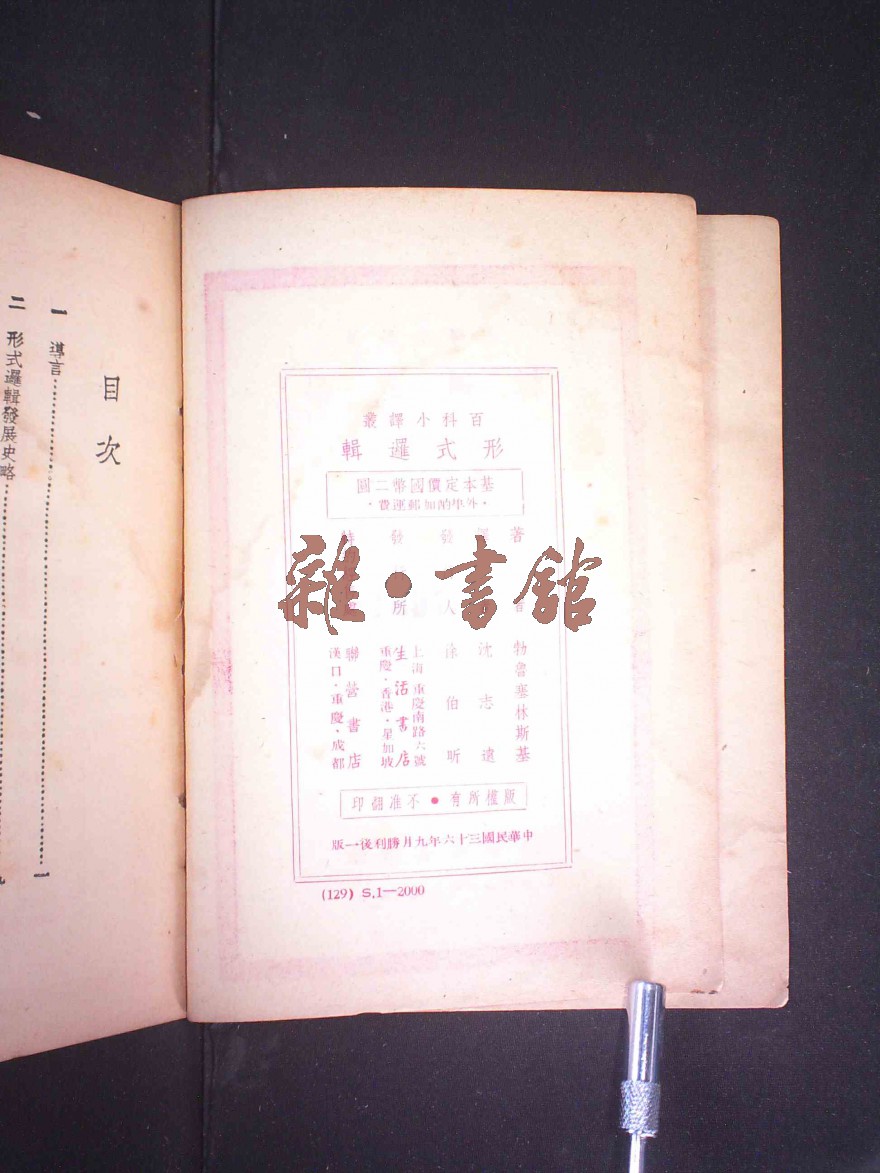 目次
一 導言
一
二 形式邏輯發展史略
百科小譯叢
形式邏輯
基本定價國幣二圓
·外埠酌加郵運費·
著 者 勃魯塞林斯基
沈志遠
發 人 徐伯昕
發 所 生活書店
上海·重慶南路六號
重慶·香港·星加坡
聯營書店
漢口·重慶·成都
版權所有●不准翻印
中華民國三十六年九月勝利後一版
(129) S.1—2000
雜·書館